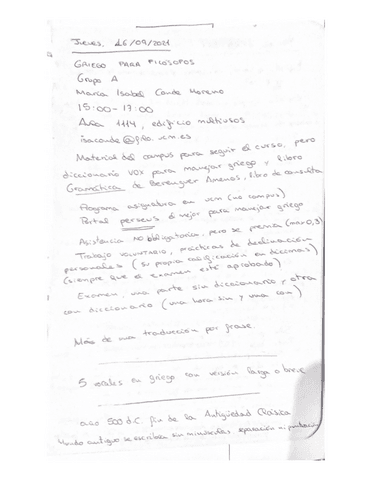 Jueves, 16/09/2021
GRIEGO PARA FILÓSOFOS
Grupo A
María Isabel Conde Moreno
15:00-17:00
Aula 1114, edificio multiusos
isaconde@filo.ucm.es
Material del campus para seguir el curso, pero
diccionario VOX para manejar griego y libro
Gramática de Berenguer Amenós, libro de consulta
Programa asignatura en ucm (no campus)
Portal perseus el mejor para manejar griego
Asistencia no obligatoria, pero se premia (max 0,3)
Trabajo voluntario, prácticas de declinación
personales (su propia calificación en décimas)
(siempre que el examen esté aprobado)
Examen, una parte sin diccionario y otra
con diccionario (una hora sin y una con)
Más de una traducción por frase
5 vocales en griego con versión larga o breve
año 500 d.C. fin de la Antigüedad Clásica
Mundo antiguo se escribía sin minúsculas, separación ni puntuación